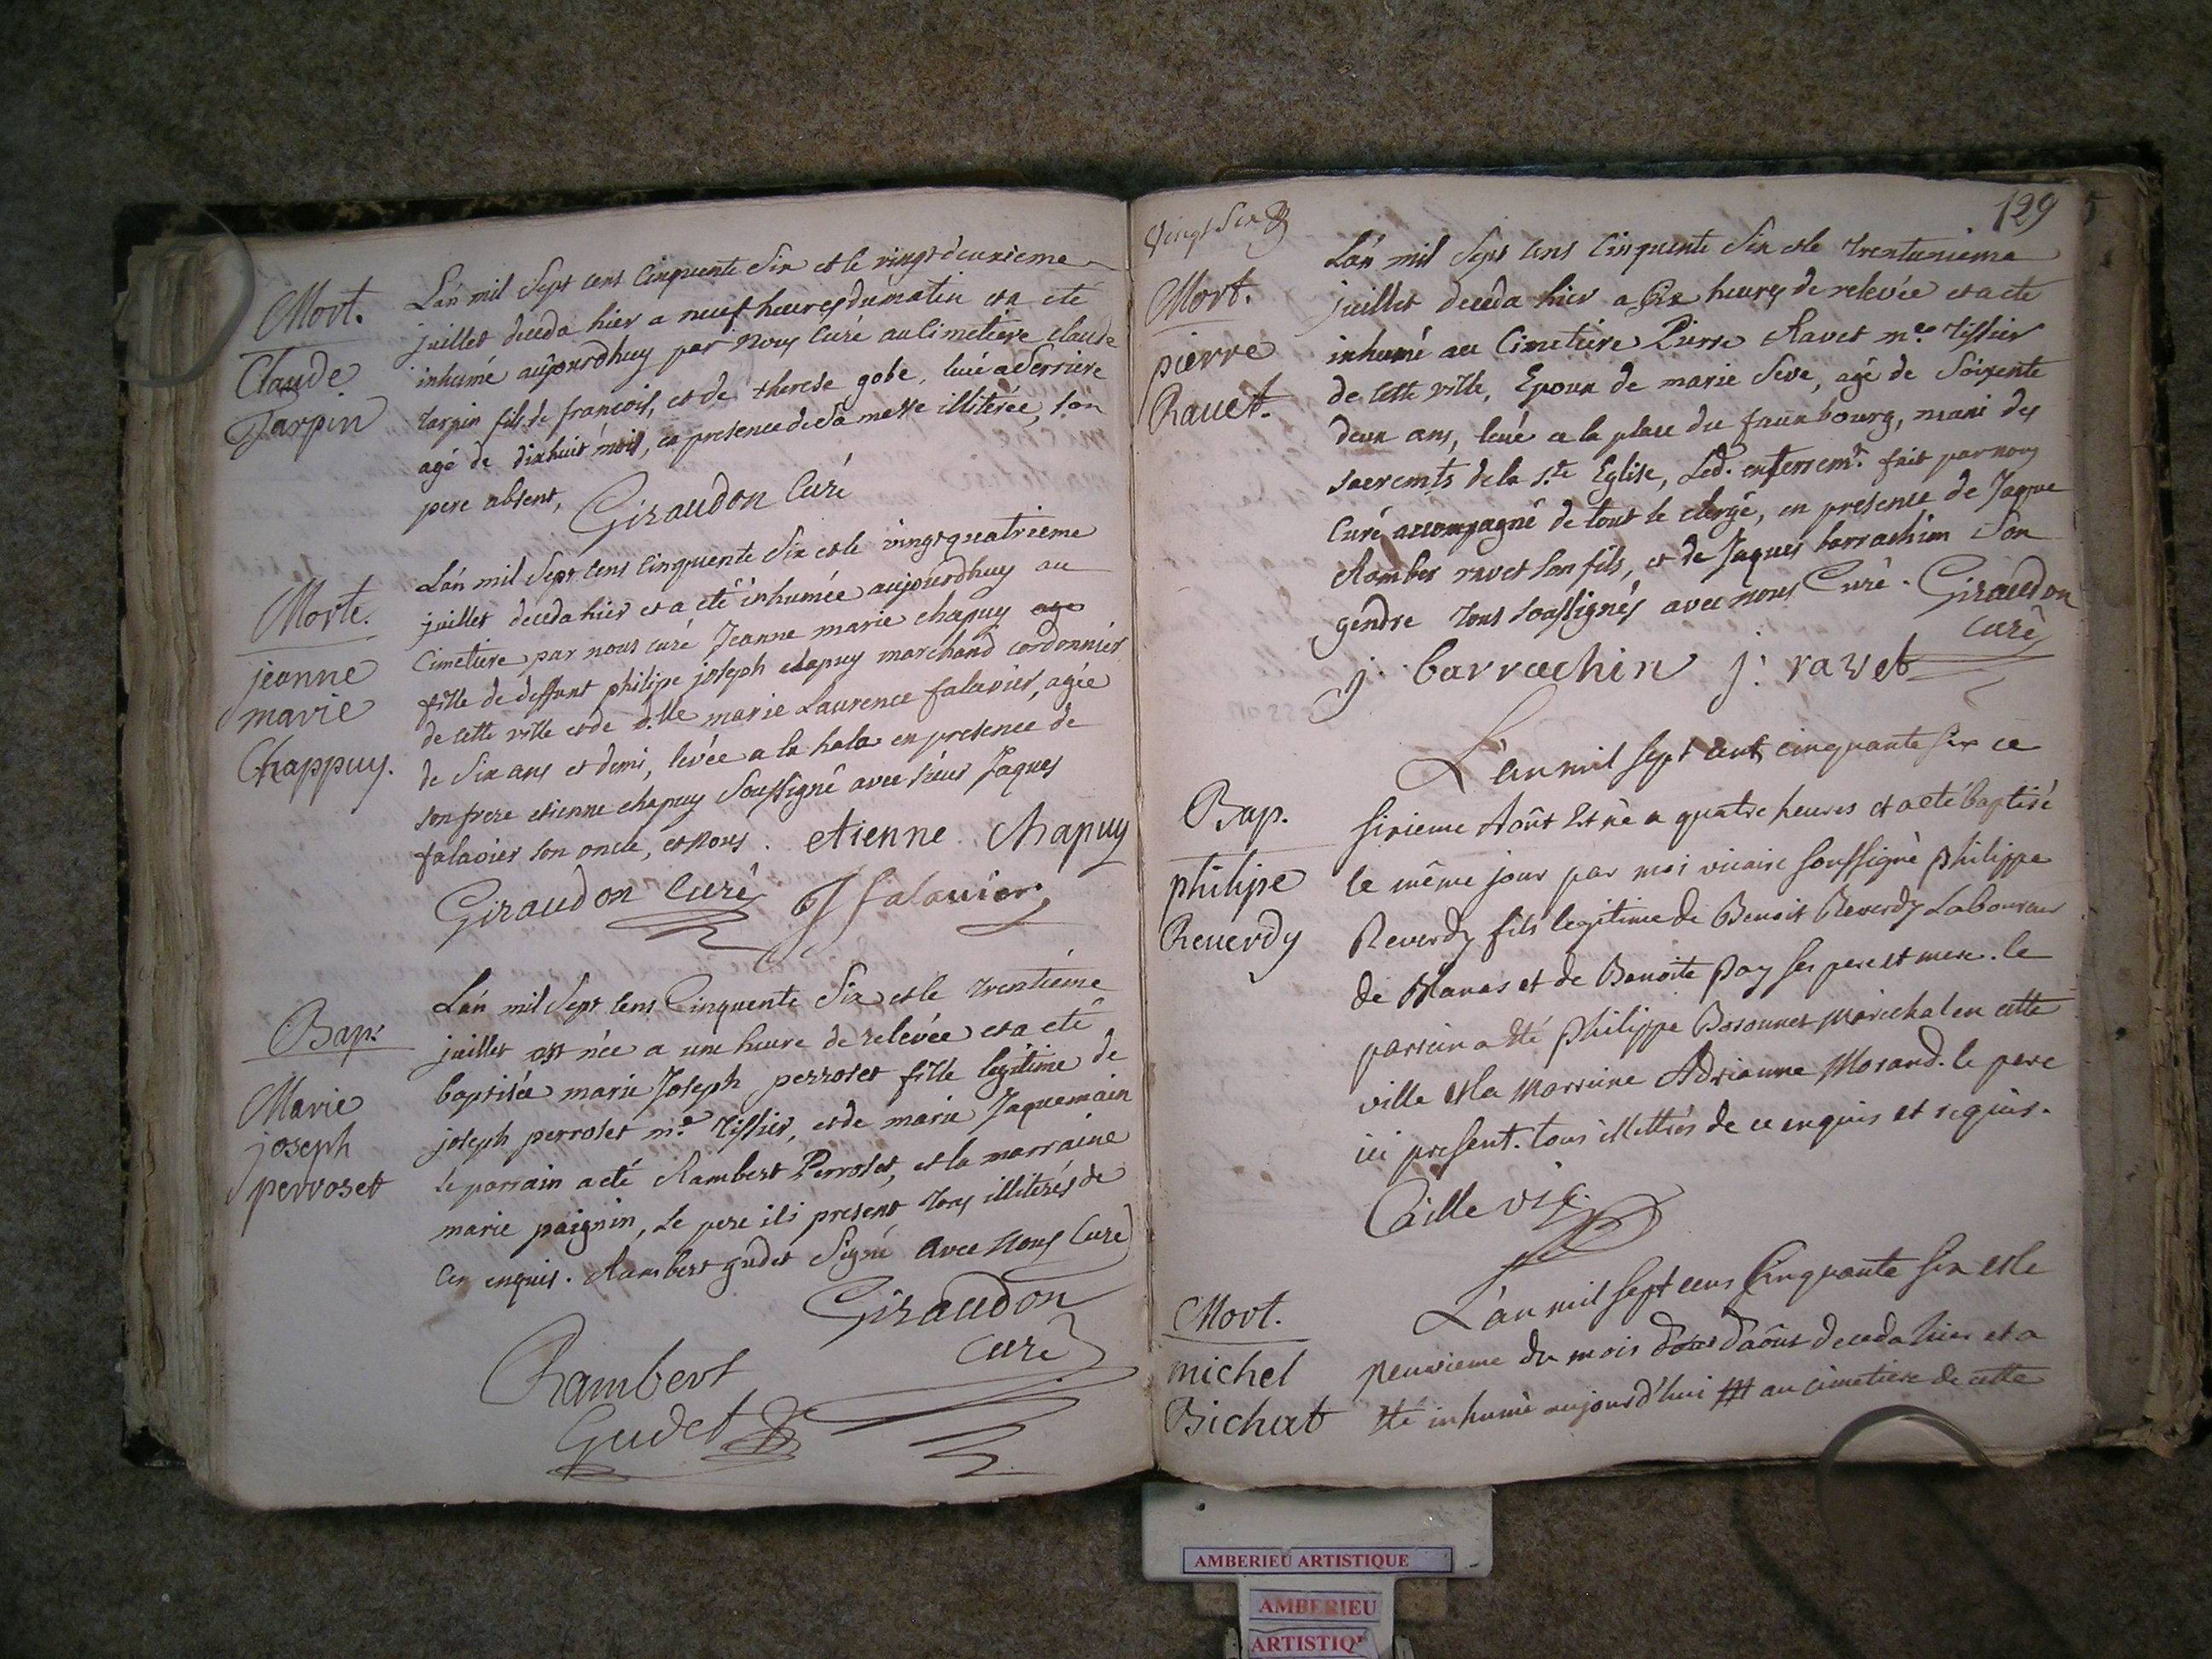 Mort.
Claude
Tarpin
L'an mil Sept cens Cinquente Six et le vingtdeuxieme
juillet deceda hier a neuf heures du matin et a eté
inhumé aujourdhuy par Nous Curé au Cimetiere claude
tarpin fils de francois, et de therese gobe, levé a Derriere
agé de dixhuit mois, en presence de Sa messe illiterée, son
pere absent, Giraudon Curé
Morte.
jeanne
marie
Chappuy.
L'an mil Sept Cens Cinquente Six et le vingtquatrieme
juillet deceda hier et a eté inhumée aujourdhuy au
Cimetiere par nous curé Jeanne marie chapuy age
fille de deffunt philipe joseph chapuy marchand cordonnier
de cette ville et de d.lle marie Laurence falavier, agée
de Six ans et demi, levée a la hala en presence de
son frere etienne chapuy Soussigné avec sieur Jaques
falavier son oncle, et nous. etienne Chapuy
Giraudon Curé J falavier
Bap.
Marie
joseph
perroset
L'an mil Sept Cens Cinquente Six et le trentiéme
juillet est née a une heure de relevée et a eté
baptisée marie Joseph perroset fille legitime de
joseph perroset m.e tissier, et de marie Jaquemain
le parrain a eté Rambert Perroset, et la marraine
marie paignin, Le pere ici present tous illiterés de
Ce enquis. Rambert gudet Signé avec Nous Curé
Giraudon
Curé
Rambert
Gudet
Vingt Six
129
Mort.
pierre
Rauet.
L'an mil Sept Cens Cinquente Six et le trentunieme
juillet deceda hier a Six heures de relevée et a eté
inhumé au Cimetiere Pierre Ravet m.e tissier
de Cette ville, Epoux de marie Seve, agé de Soixente
deux ans, levé a la place du fauxbourg, muni des
sacremts de la S.te Eglise, Led. enterrem.t fait par nous
Curé accompagné de tout le clergé, en presence de Jaque
Rambert ravet son fils, et de Jaques barrachim Son
gendre tous soussignés avec nous Curé. Giraudon
curé
j. barrachin j. ravet
Bap.
philipe
Reuerdy
L'an mil sept cent cinquante six ce
sixieme Août Est né a quatre heures et a eté baptisé
le même jour par moi vicaire soussigné philippe
Reverdy fils legitime de Benoit Reverdy Laboureur
de et de Benoite pay ses pere et mere. le
parrein a eté philippe Bosonnet marechal en cette
ville et la marreine Adrianne Morand. le pere
ici present. tous illettrés de ce enquis et requis.
Caille vic.
Mort.
michel
Bichat
L'an mil sept cens Cinquante six et le
neuvieme du mois d'aout d'août deceda hier et a
eté inhumé aujourd'hui au cimetiere de cette
AMBERIEU ARTISTIQUE
AMBERIEU
ARTISTIQ